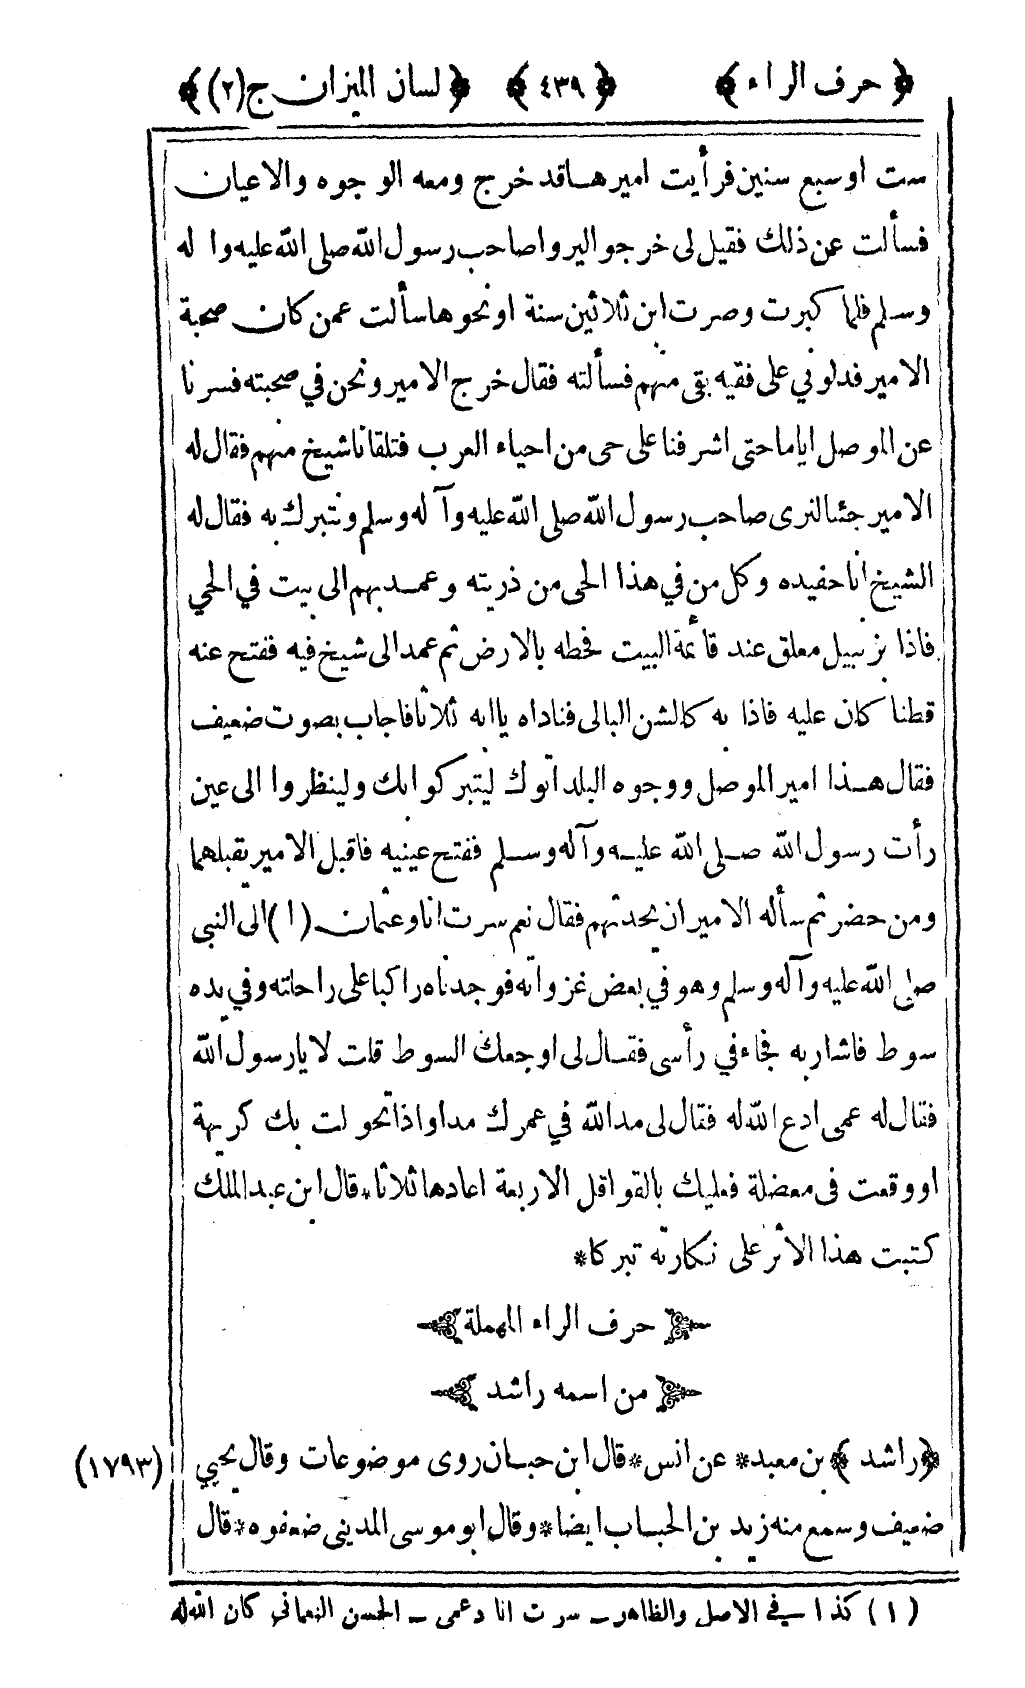 ﴿ حرف الراء ﴾ ﴿ ٤٣٩ ﴾ ﴿ لسان الميزان ج (٢) ﴾
ست اوسبع سنين فرأيت اميرها قد خرج ومعه الوجوه والاعيان
فسألت عن ذلك فقيل لى خرجوا ليروا صاحب رسول الله صلى الله عليه واله
وسلم فلما كبرت وصرت ابن ثلاثين سنة اونحوها سألت عمن كان صحبة
الامير فدلوني على فقيه بقى منهم فسألته فقال خرج الامير ونحن في صحبته فسرنا
عن الموصل اياما حتى اشرفنا على حى من احياء العرب فتلقانا شيخ منهم فقال له
الامير جئنا لنرى صاحب رسول الله صلى الله عليه وآله وسلم ونتبرك به فقال له
الشيخ انا حفيده وكل من في هذا الحى من ذريته وعمد بهم الى بيت في الحي
فاذا بزنبيل معلق عند قائمة البيت فحطه بالارض ثم عمد الى شيخ فيه ففتح عنه
قطنا كان عليه فاذا به كالشن البالى فناداه يا ابه ثلاثا فاجاب بصوت ضعيف
فقال هذا امير الموصل ووجوه البلد اتوك ليتبركوا بك ولينظروا الى عين
رأت رسول الله صلى الله عليه وآله وسلم ففتح عينيه فاقبل الامير يقبلهما
ومن حضر ثم سأله الامير ان يحدثهم فقال نعم سرت انا وعثمان (١) الى النبى
صلى الله عليه وآله وسلم وهو في بعض غزواته فوجدناه راكبا على راحلته وفي يده
سوط فاشار به فجاء في رأسى فقال لى اوجعك السوط قلت لا يارسول الله
فقال له عمى ادع الله له فقال لى مد الله في عمرك مدا واذا تحولت بك كريهة
اووقعت فى معضلة فعليك بالقواقل الاربعة اعادها ثلاثا، قال ابن عبد الملك
كتبت هذا الاثر على نكارته تبركا*
حرف الراء المهملة
من اسمه راشد
﴿ راشد ﴾ بن معبد* عن انس* قال ابن حبان روى موضوعات وقال يحيى (١٧٩٣)
ضعيف وسمع منه زيد بن الحباب ايضا* وقال ابو موسى المدينى ضعفوه* قال
(١) كذا في الاصل والظاهر ــ سرت انا دعمى ــ الحسن النعمانى كان الله له